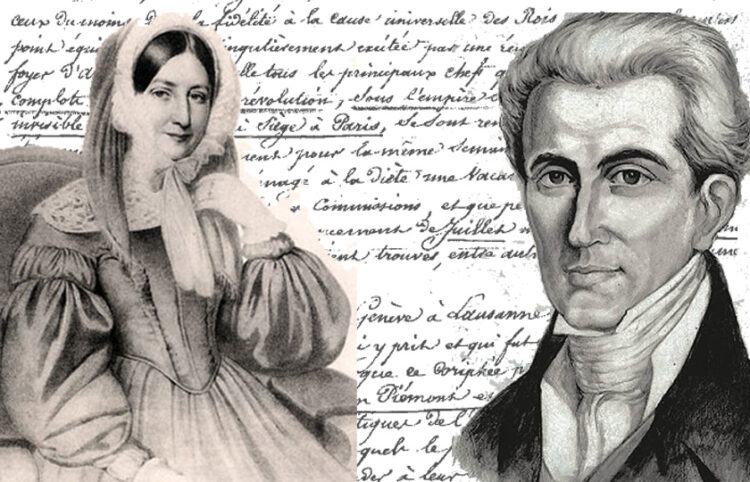 ceux du moins de la fidélité à la cause universelle des Rois
point équi ngulièrement excitée par une réu
foyer d'a elle tous les principaux chefs
complots révolution, sous l'empire
invisible Siège à Paris, se sont ren
ent pour la même semai
nagé à la Diète une Vaca
Commissions et que pe
cement de Juillet
ent trouvés, entre autr
Genève à Lausanne
i y prit et qui fut
que ce Coriphée
Piémont es
tiques de l'
quel le
der à leur